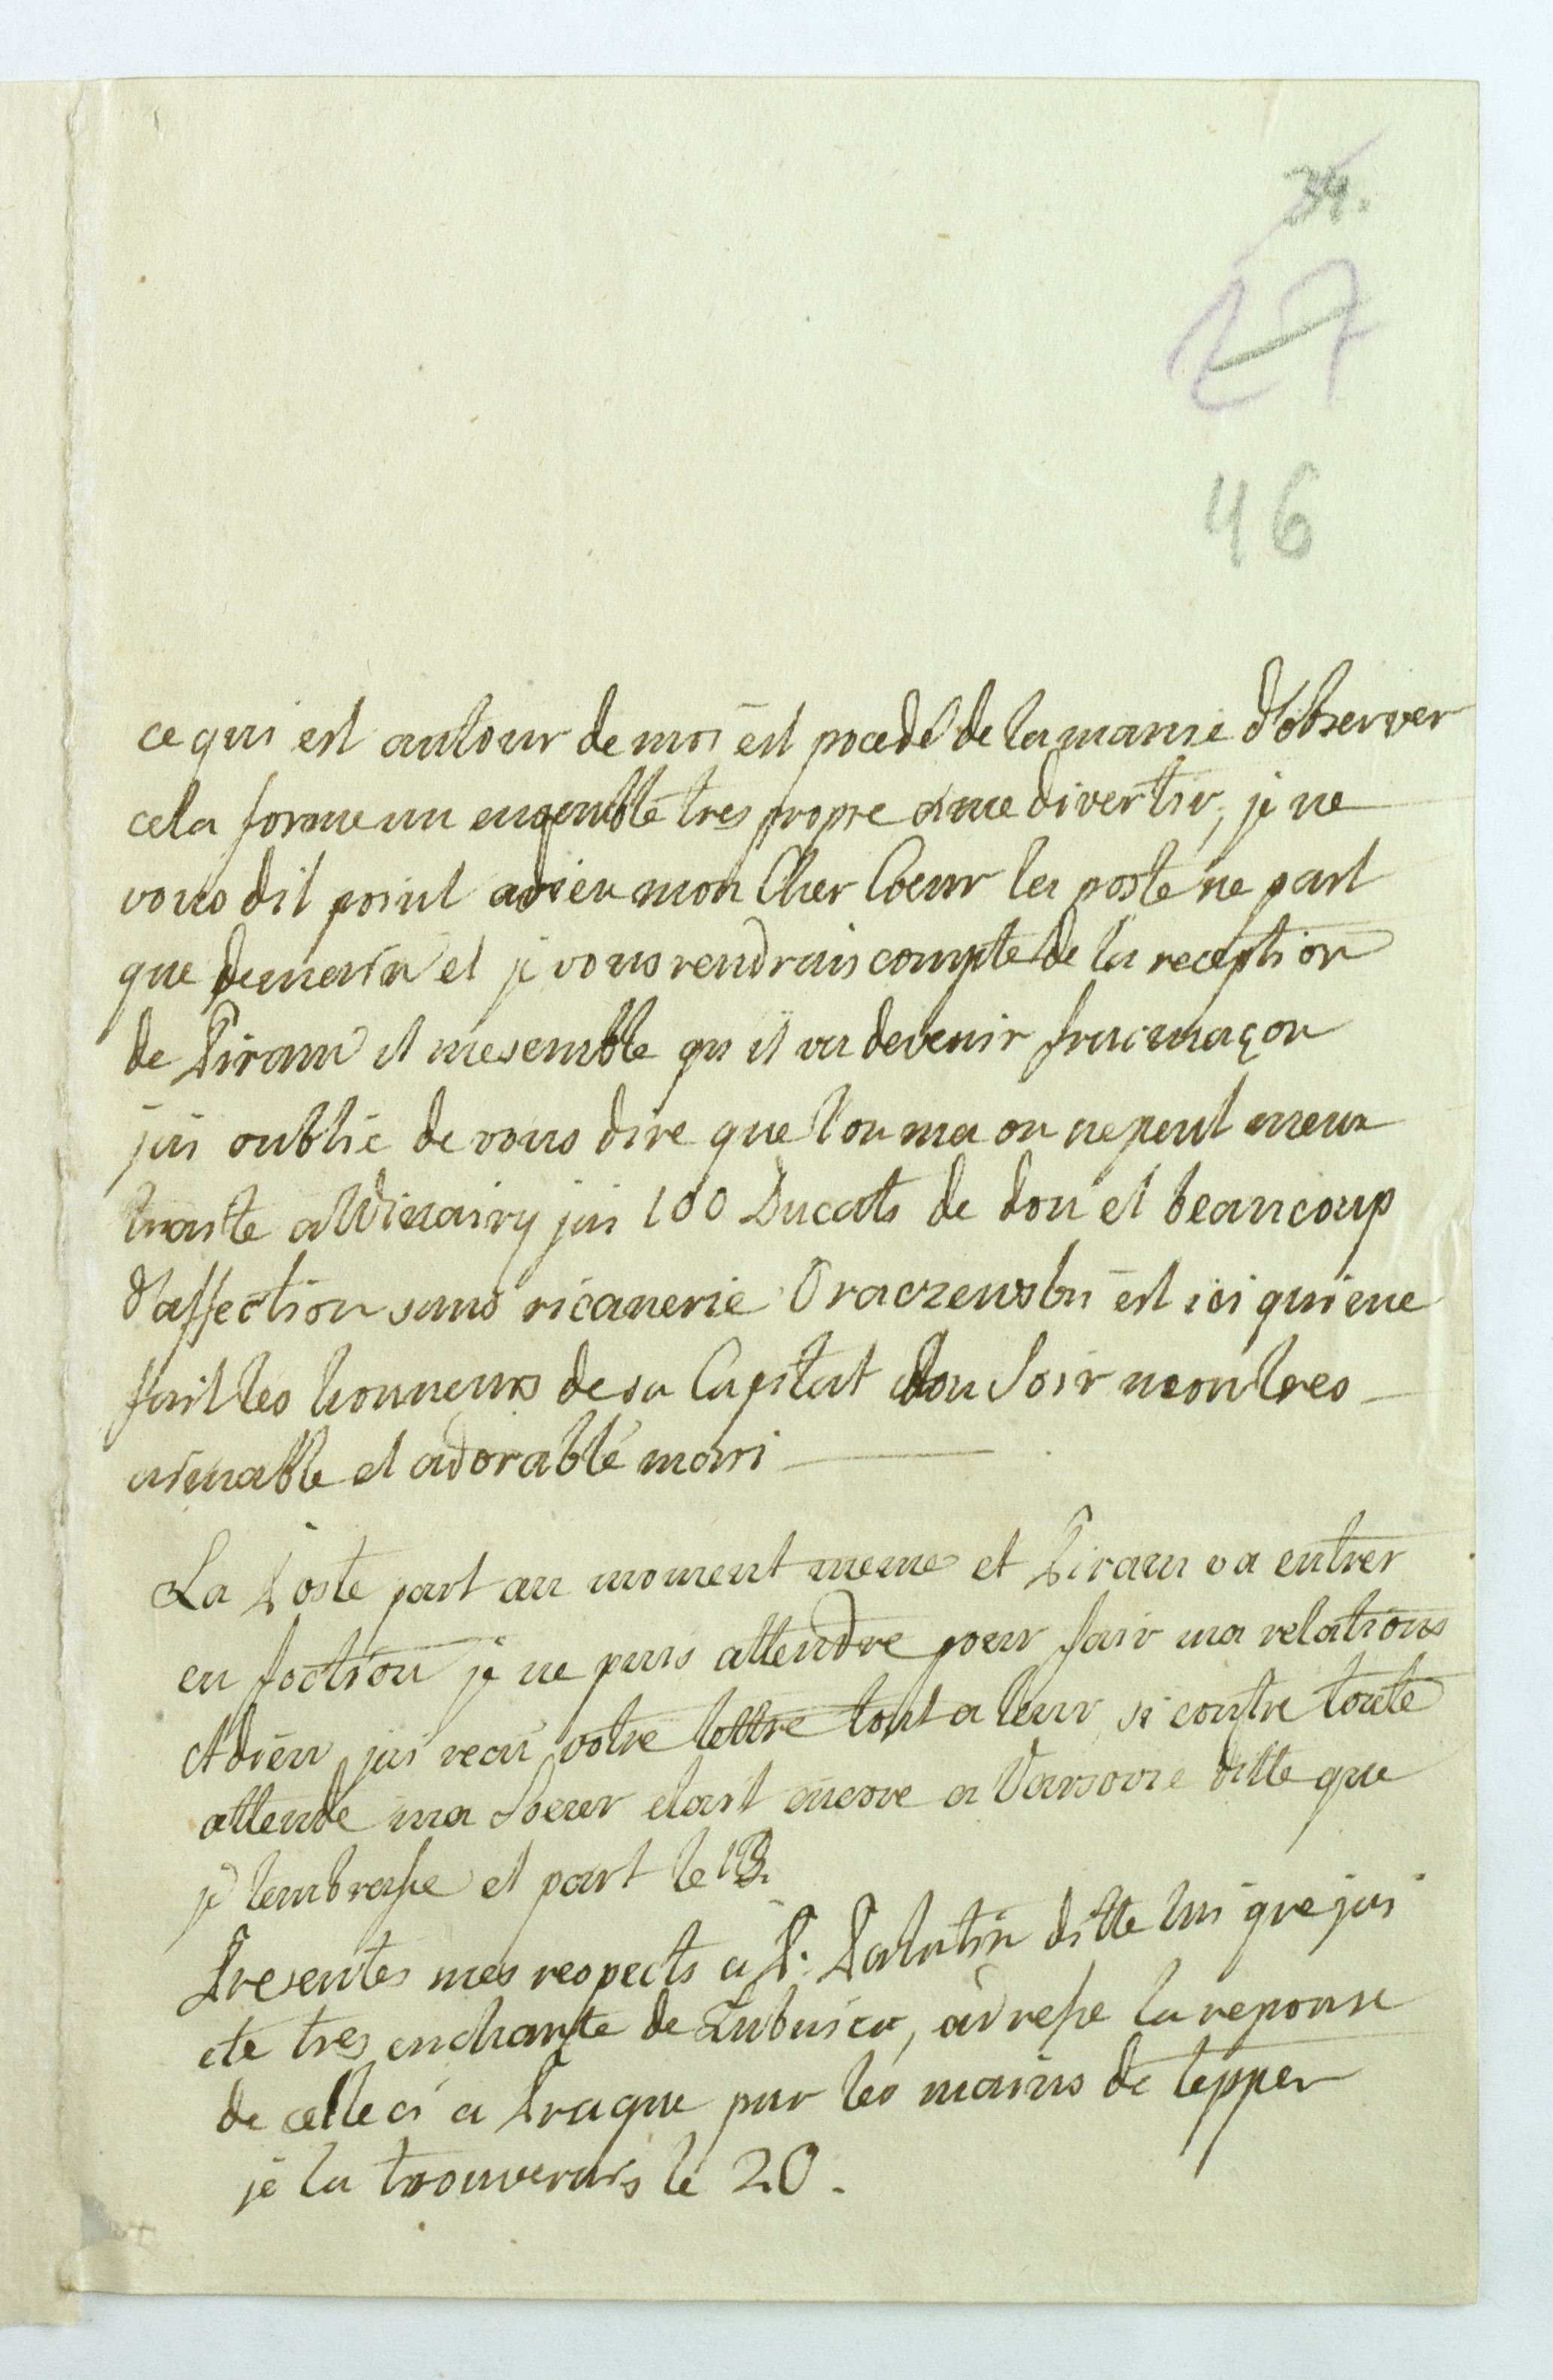 34.
27
46
ce qui est autour de moi est pocedé de la manie d'observer
cela forme un ensemble tres propre a me divertir, je ne
vous dit point adieu mon Cher Coeur la poste ne part
que demain et je vous rendrais compte de la reception
de Piram il me semble qu il va devenir fracmaçon
jai oublie de vous dire que lon ma on ne peut mieux
traite a Winairy jai 100 Ducats de don et beaucoup
d'affection sans ricanerie Oraczewski est ici qui me
fait les honneurs de sa Capital bon Soir mon tres
aimable et adorable mari
La Poste part au moment meme et Piram va entrer
en foction je ne puis attendre pour fair ma relations
Adieu jai recu votre lettre tout a leur si contre toute
attende ma Soeur etait encore a Varsovie ditte que
je lembrasse et part le 13.
Presentes mes respects a P. Palatin ditte lui que jai
ete tres enchante de Lubnica, adresse la reponse
de celle ci a Prague par les mains de tepper
je la trouverais le 20.